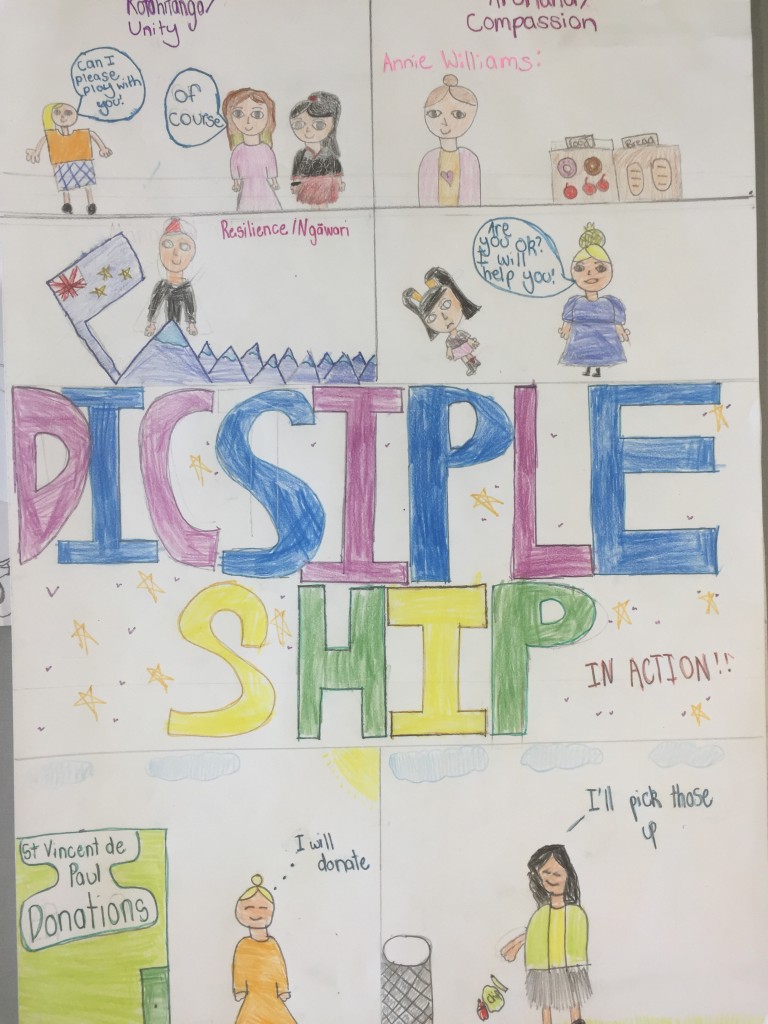 Kotahitanga/
Unity
Compassion
Can I
please
play with
you?
Of
course
Annie Williams:
Food
Bread
Resilience/Ngāwari
Are
you ok?
I will
help you!
DICSIPLE
SHIP
IN ACTION!!
St Vincent de
Paul
Donations
I will
donate
I'll pick those
up